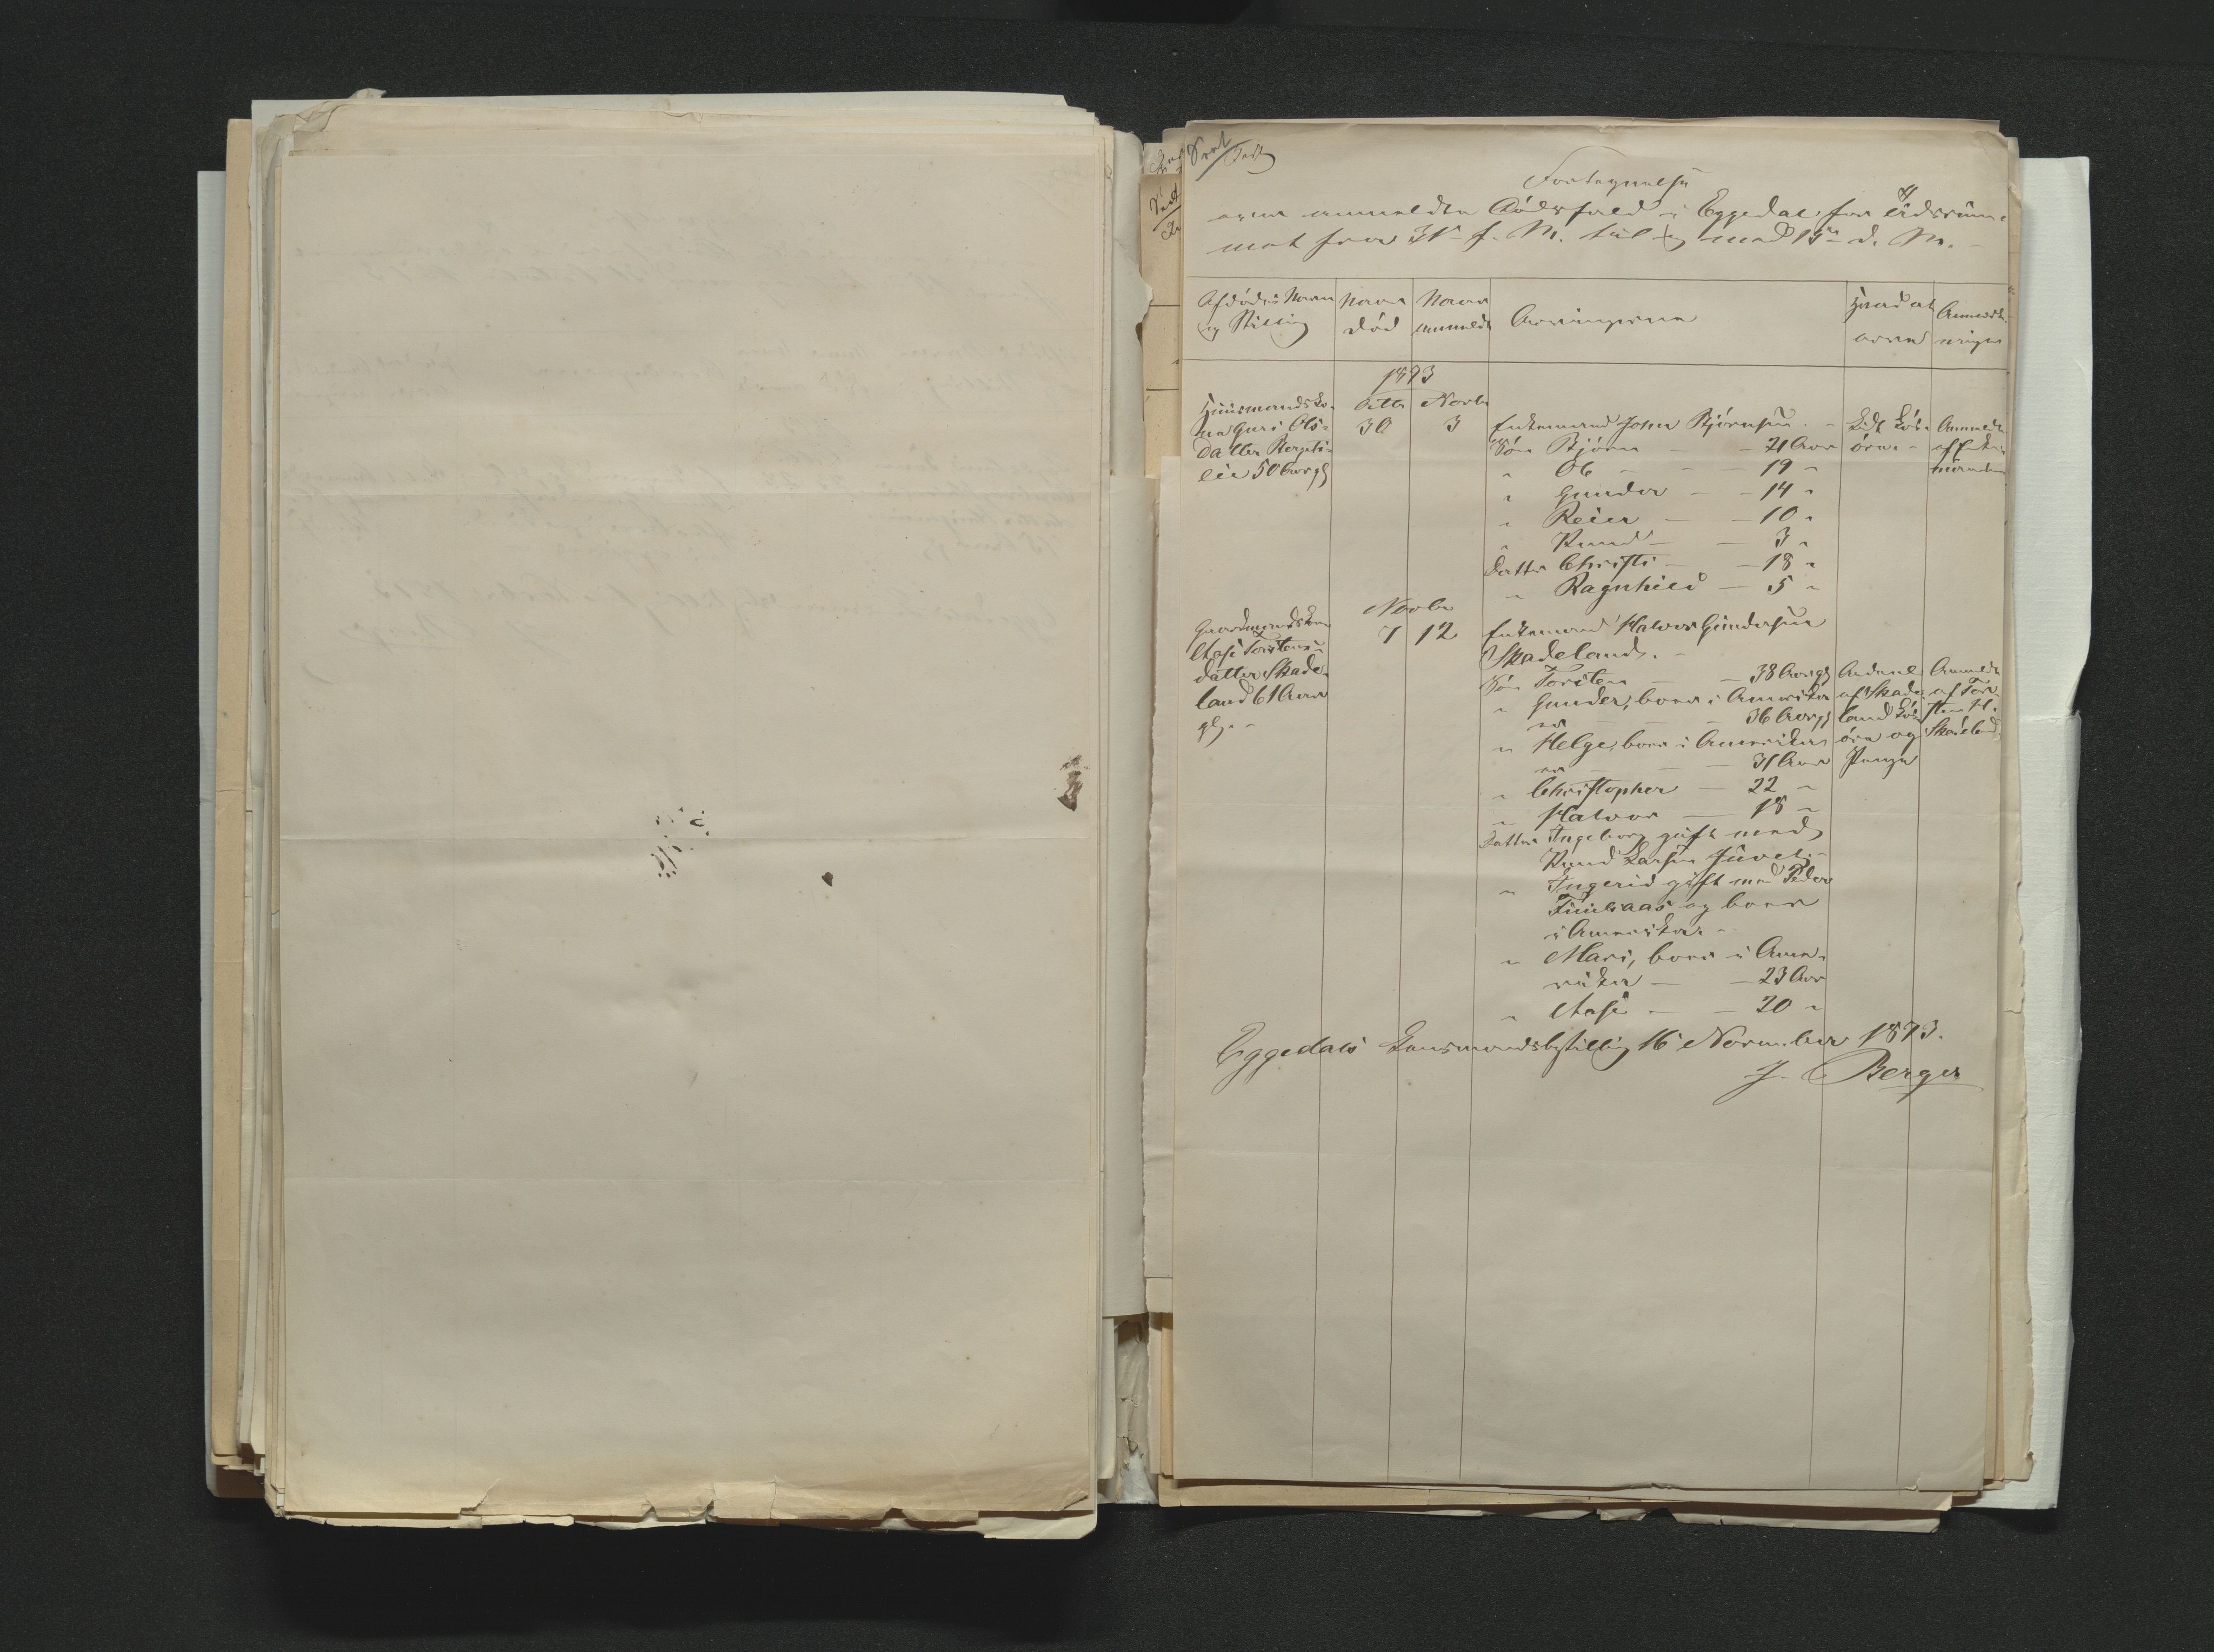 Fortegnelse
over anmeldte Dødsfald i Eggedal for Tidsrum-
met fra 31te f. M. til og med 15de d. M.
Afdødes Navn og Stilling
Naar død
Naar anmeldt
Arvingerne
Hvad at arve
Anmærkninger
1873
Huusmandsko-
ne Guri Ols-
datter Bergsti-
eie 50 Aar gl
Octbr 30
Novbr 3
Enkemand John Bjørnsen
Søn Bjørn — 21 Aar
" Ole — 19 "
" Gunder — 14 "
" Reier — 10 "
" Knud — 3 "
Datter Christi — 18 "
" Ragnhild — 5 "
Lidt Løs-
øre
Anmeldt
af Enke-
manden
Gaardmandskone
Aase Torstens-
datter Skade-
land 61 Aar
gl.
Novbr
7 12
Enkemand Halvor Gundersen
Skadeland.
Søn Torsten — 38 Aar gl
" Gunder, boer i Amerika
er — 36 Aar gl
" Helge, boer i Amerika
er — 31 Aar
" Christopher — 22 "
" Halvor — 18 "
Datter Ingeborg gift med
Knud Larsen Juvet
" Ingerid gift med Peder
og boer
i Amerika.
" Mari, boer i Ame-
rika — 23 Aar
" Aase — 20 "
Andeel
af Skade-
land Løs-
øre og
Penge
Anmeldt
af Tor-
sten H.
Skadeland
Eggedals Lensmandsbestilling 16 November 1873.
J. Berger